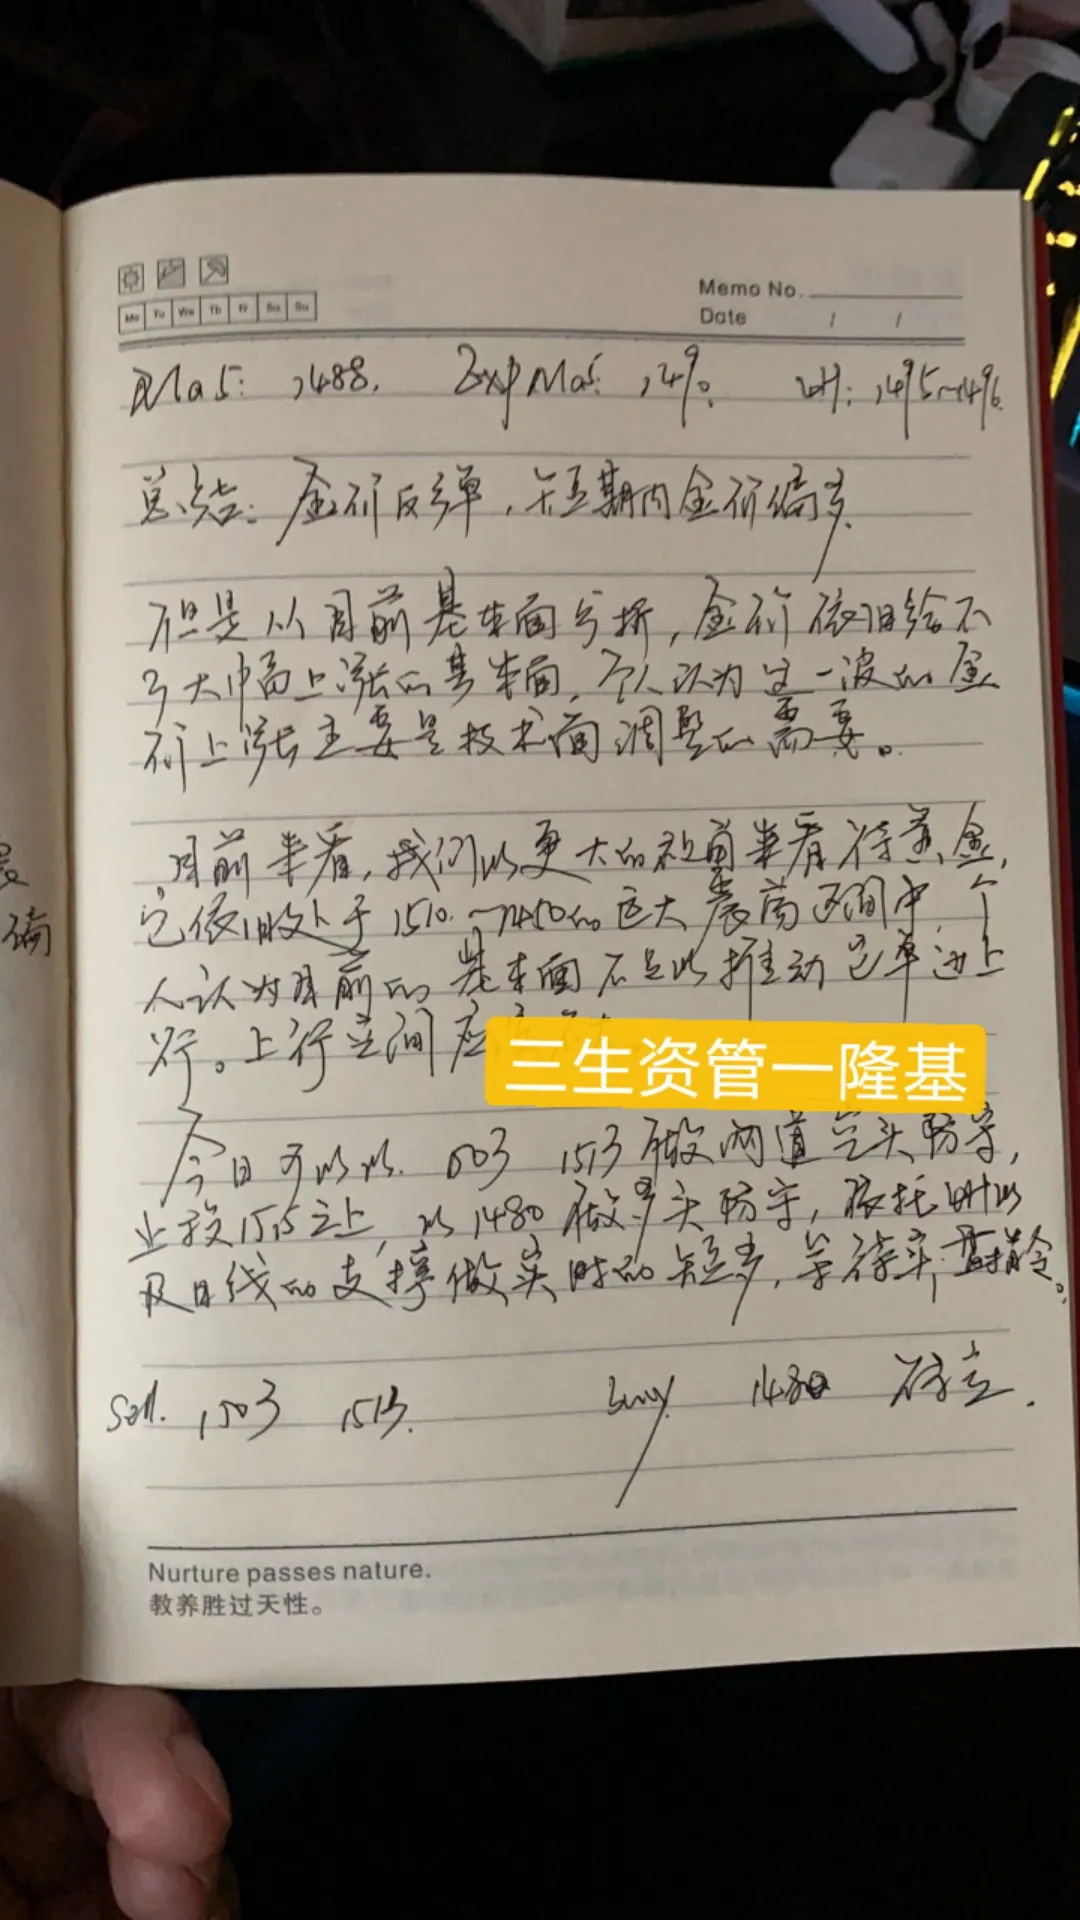 Mo Tu We Th Fr Sa Su
Memo No.
Date / /
Ma5: 1488. ExpMa5: 1490. 4H: 1495~1496.
总结: 金价反弹, 短期内金价偏多.
但是从目前基本面分析, 金价依旧给不
了大幅上涨的基本面, 个人认为这一波的金
价上涨主要是技术面调整的需要。
目前来看, 我们以更大的视角来看待黄金,
它依旧处于1510.~1450的巨大震荡区间中, 个
人认为目前的基本面不足以推动它单边上
行。上行空间应
三生资管一隆基
今日可以以. 1503 1513做两道空头防守,
止损1515之上, 以1480做多头防守, 依托4H以
及日线的支撑做实时的短多, 等待实盘指令。
Sell. 1503 1513. buy. 1480
Nurture passes nature.
教养胜过天性。